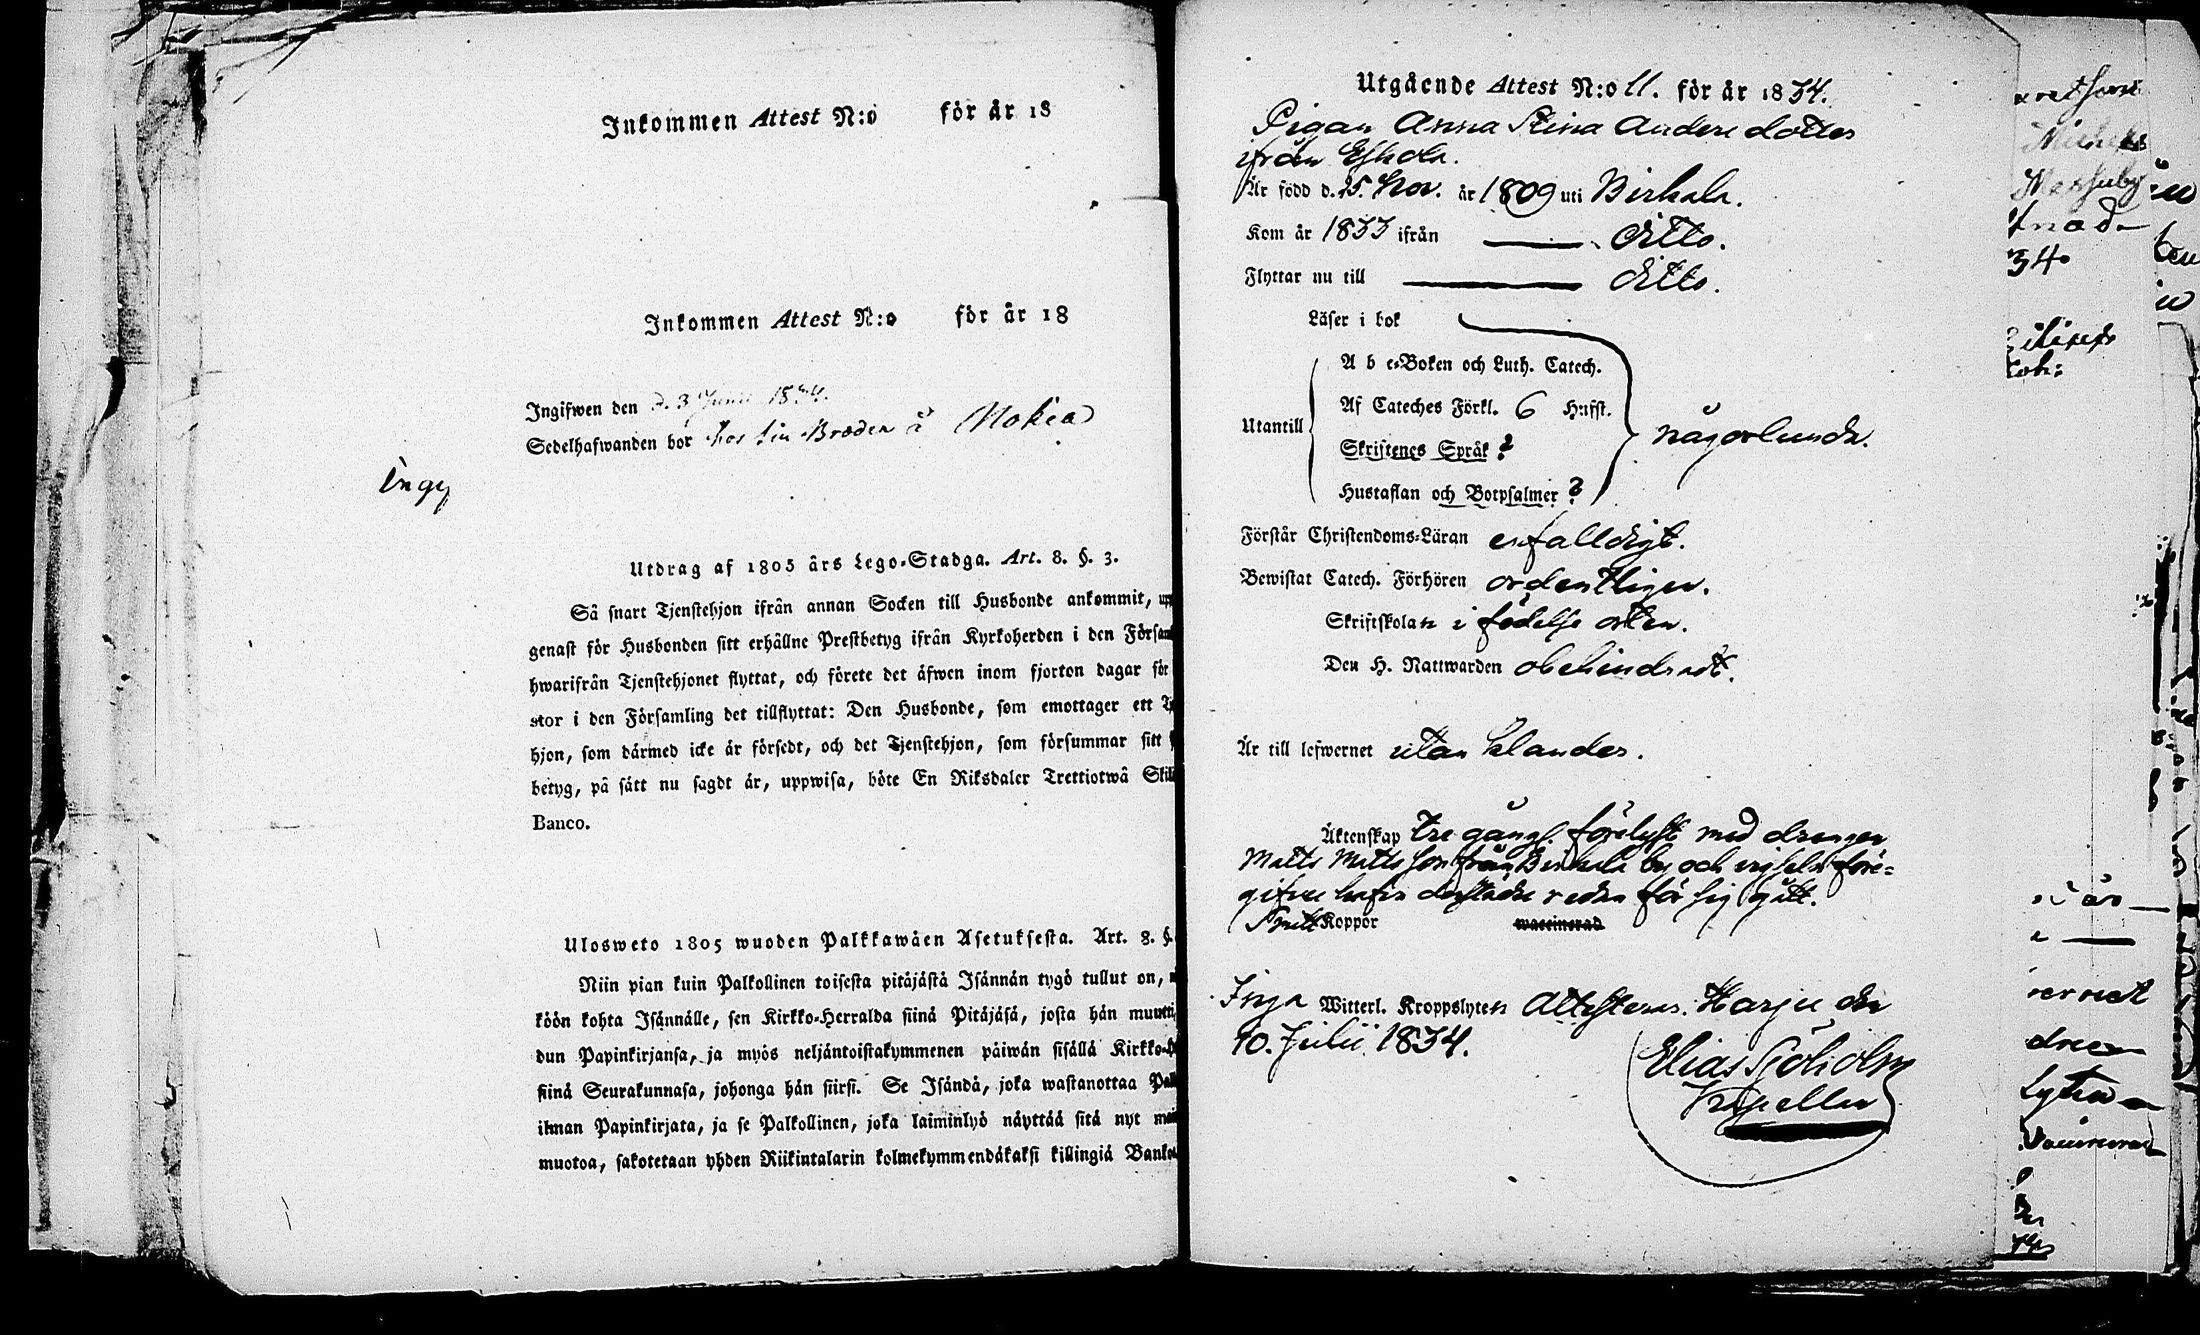 Inkommen Attest N:o för år 18
Inkommen Attest N:o för år 18
Ingifwen den d. 3 Junii 1834.
Sedelhafwanden bor hos sin Broder å Nokia
Ingif
Utdrag af 1805 års Lego-Stadga. Art. 8. §. 3.
Så snart Tjenstehjon ifrån annan Socken till Husbonde ankommit,
genast för Husbonden sitt erhållne Prestbetyg ifrån Kyrkoherden i den
hwarifrån Tjenstehjonet flyttat, och förete det äfwen inom fjorton dagar för
stor i den Församling det tillflyttat: Den Husbonde, som emottager ett
hjon, som dårmed icke år försedt, och det Tjenstehjon, som försummar sitt
betyg, på sätt nu sagdt år, uppwisa, böte En Riksdaler Trettiotwå
Banco.
Ulosweto 1805 wuoden Palkkawäen Asetuksesta. Art. 8. §.
Niin pian kuin Palkollinen toisesta pitäjästä Isännän tygö tullut on,
köön kohta Isännälle, sen Kirkko-Herralda siinä Pitäjäsä, josta hän
dun Papinkirjansa, ja myös neljäntoistakymmenen päiwän sisällä
siinä Seurakunnasa, johonga hän siirsi. Se Isändä, joka wastanottaa
ilman Papinkirjata, ja se Palkollinen, joka laiminlyö näyttää sitä nyt
muotoa, sakotetaan yhden Riikintalarin kolmekymmendäkaksi killingiä
Utgående Attest N:o 11. för år 1834.
Pigan Anna Stina Anders dotter
ifrån Eskola.
Är född d. 25. Nov. år 1809 uti Birkala.
Kom år 1833 ifrån — Ditto.
Flyttar nu till — Ditto.
Läser i bok
Utantill
A b c-Boken och Luth. Catech.
Af Cateches Förkl. 6 Hufst.
Skriftenes Språk ?
Hustaflan och Botpsalmer ?
någorlunda.
Förstår Christendoms-Läran enfalldigt.
Bewistat Catech. Förhören ordentligen.
Skriftskolan i födelse orten.
Den H. Nattwarden obehindradt.
Är till lefwernet utan klander.
Äktenskap tre gångr. förelyst med drengen
Matts Matts son från Birkala by och vigseln före-
gifves hafva derstädes redan för sig gått.
Koppor waccinerad
Inga Witterl. Kroppslyten Attesteras. Harju den
10. Julii 1834.
Elias Sjöholm
Kapellan
34.